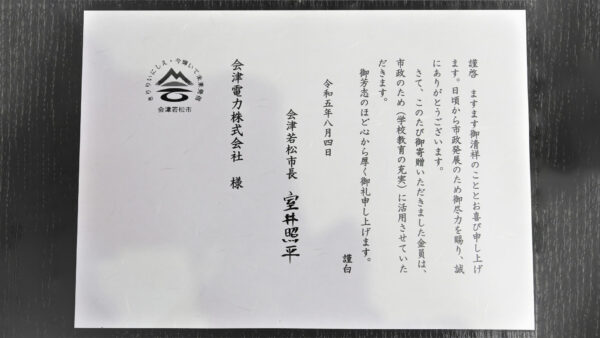 謹啓　ますます御清祥のこととお喜び申し上げ
ます。日頃から市政発展のため御尽力を賜り、誠
にありがとうございます。
さて、このたび御寄贈いただきました金員は、
市政のため（学校教育の充実）に活用させていた
だきます。
御芳志のほど心から厚く御礼申し上げます。
謹白
令和五年八月四日
会津若松市長　室井照平
会津電力株式会社　様
会津若松市